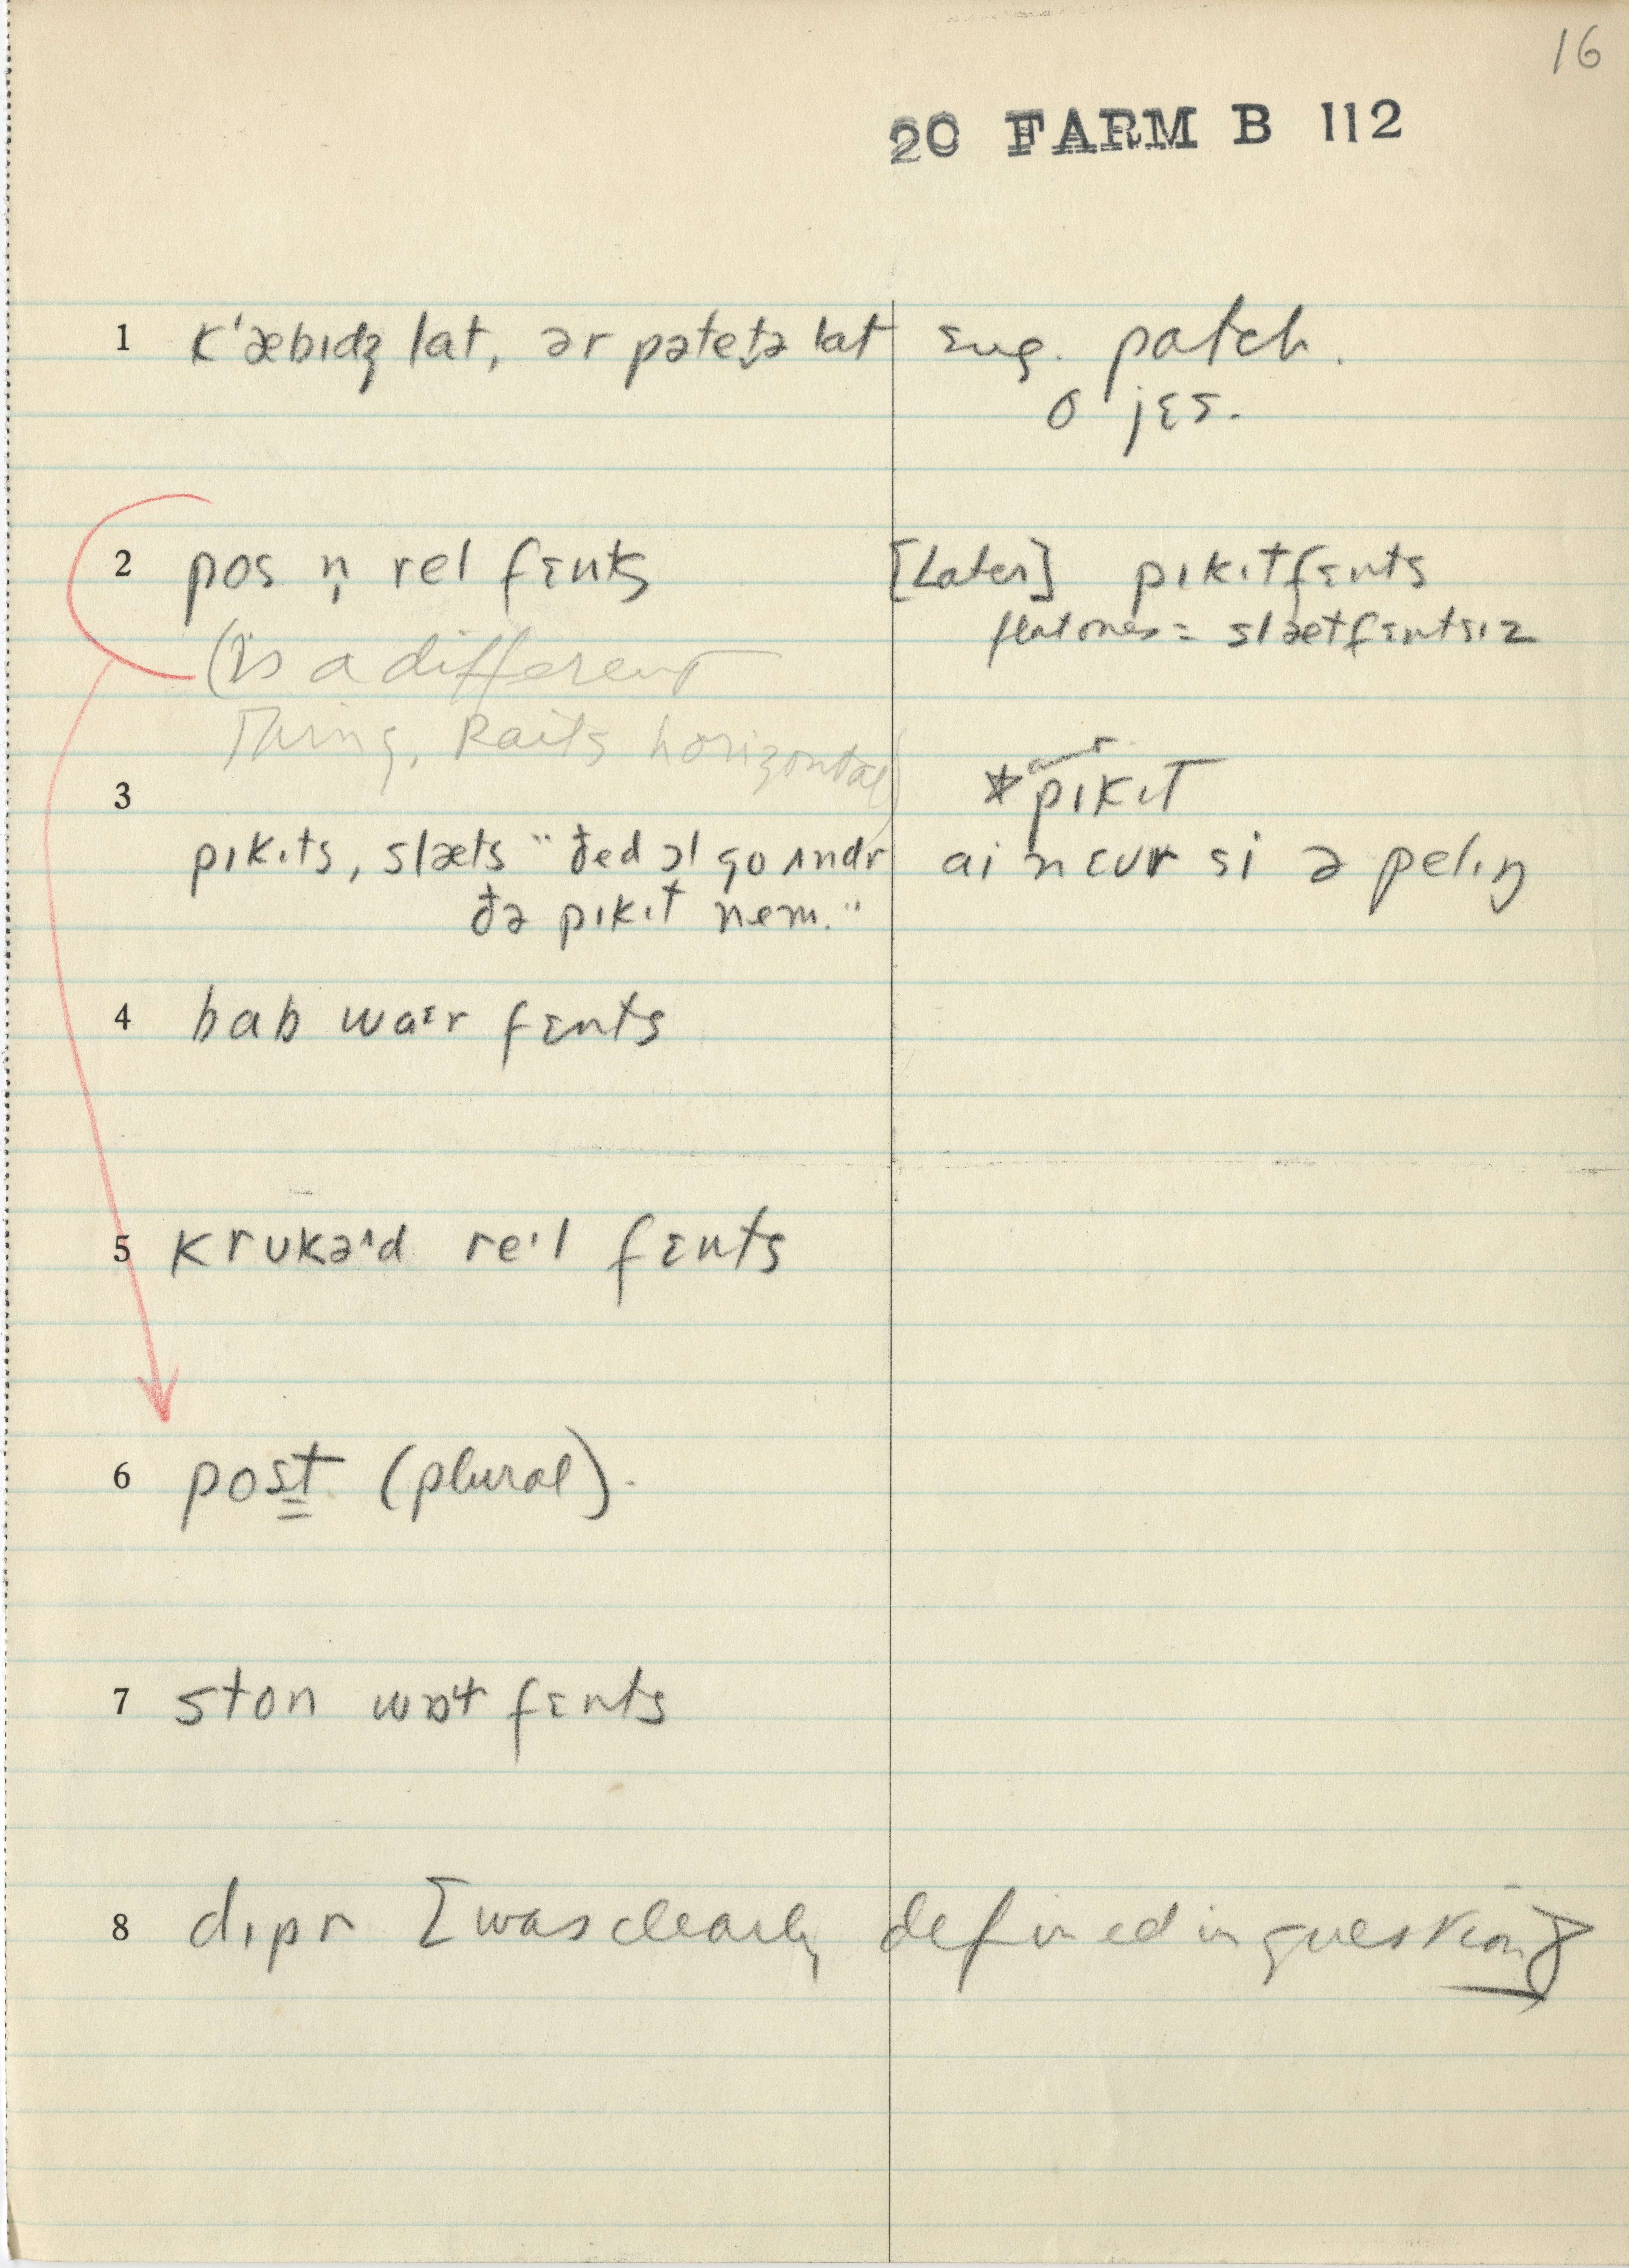 16
20 FARM B 112
1 k'æbɪdʒ lat, ər pətetə lat sug. patch.
o jɛs.
2 pos n̩ rel fɛnts [Later] pɪkɪtfɛnts
(is a different flat ones = slætfɛntsɪz
Thing, Raits horizontal)
3 *pɪkɪt
pɪkɪts, slæts "ðed ɔl go ʌndr ai nɛvr si ə pelɪŋ
ðə pɪkɪt nem."
4 bab waɛr fɛnts
5 krukəˈd reˈl fɛnts
6 post (plural).
7 ston wɒɫ fɛnts
8 dɪpr [was clearly defined in question]